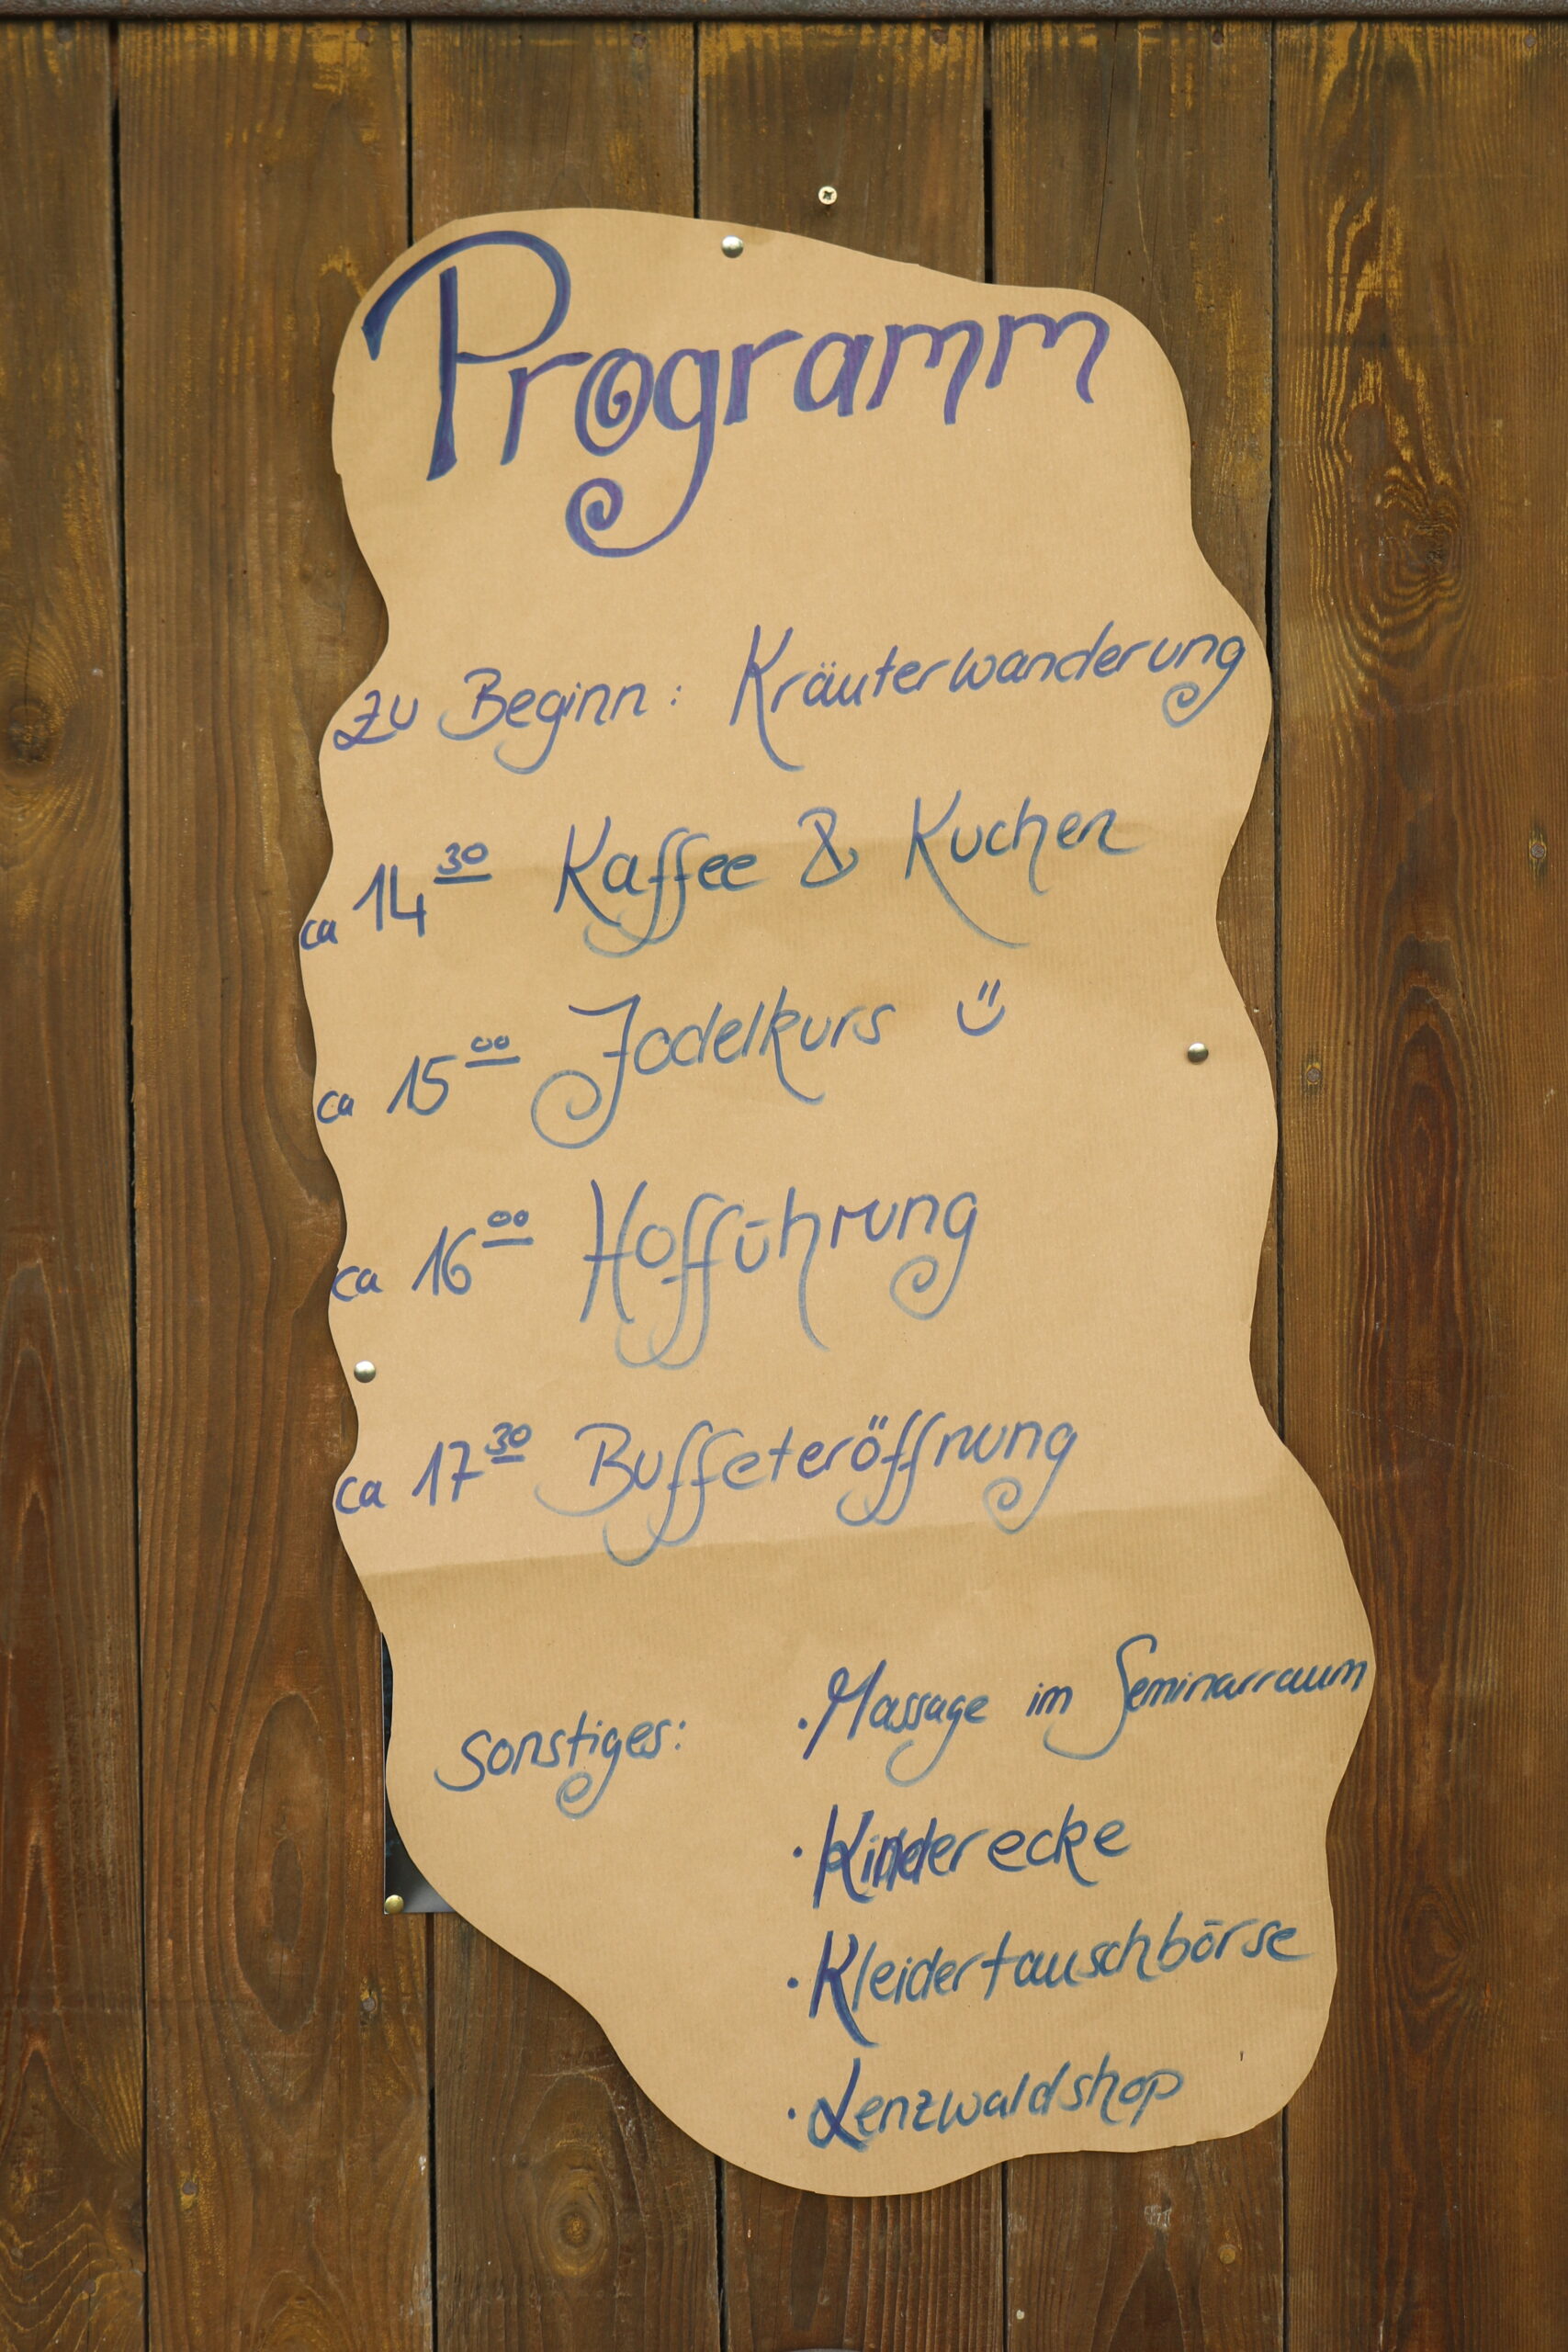 Programm
Zu Beginn: Kräuterwanderung
ca 14³⁰ Kaffee & Kuchen
ca 15⁰⁰ Jodelkurs ü
ca 16⁰⁰ Hofführung
ca 17³⁰ Buffeteröffnung
Sonstiges: · Massage im Seminarraum
· Kinderecke
· Kleidertauschbörse
· Lenzwaldshop